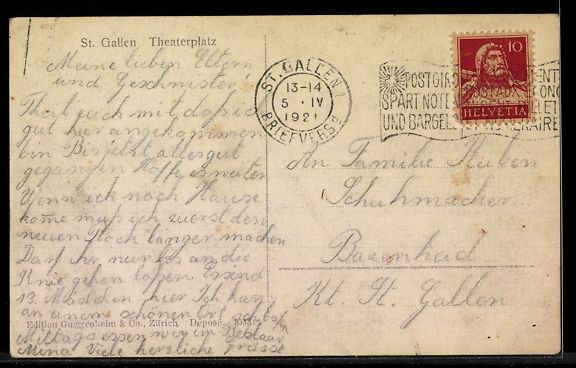 St. Gallen Theaterplatz
Meine lieben Eltern
und Geschwister!
Theile euch mit das ich
gut hier angekommen
bin Bis jetzt alles gut
gegangen Hoffe es weiter
Wenn ich nach Hause
kome muss ich zuerst den
neuen Rock länger machen
Darf ihr nur bis an die
Knie gehen lassen. Es sind
13 Mädchen hier Ich kan
an einem schönen Ort
Mittagessen
Mina Viele herzliche Grüsse
Edition Guggenheim & Co., Zürich. Déposé.
ST. GALLEN 1
13-14
5. IV
1921
BRIEFVERSd
POSTGIRO
SPART NOTEN
UND BARGELD
10
HELVETIA
An Familie Huber
Schuhmacher
Bazenheid
Kt. St. Gallen